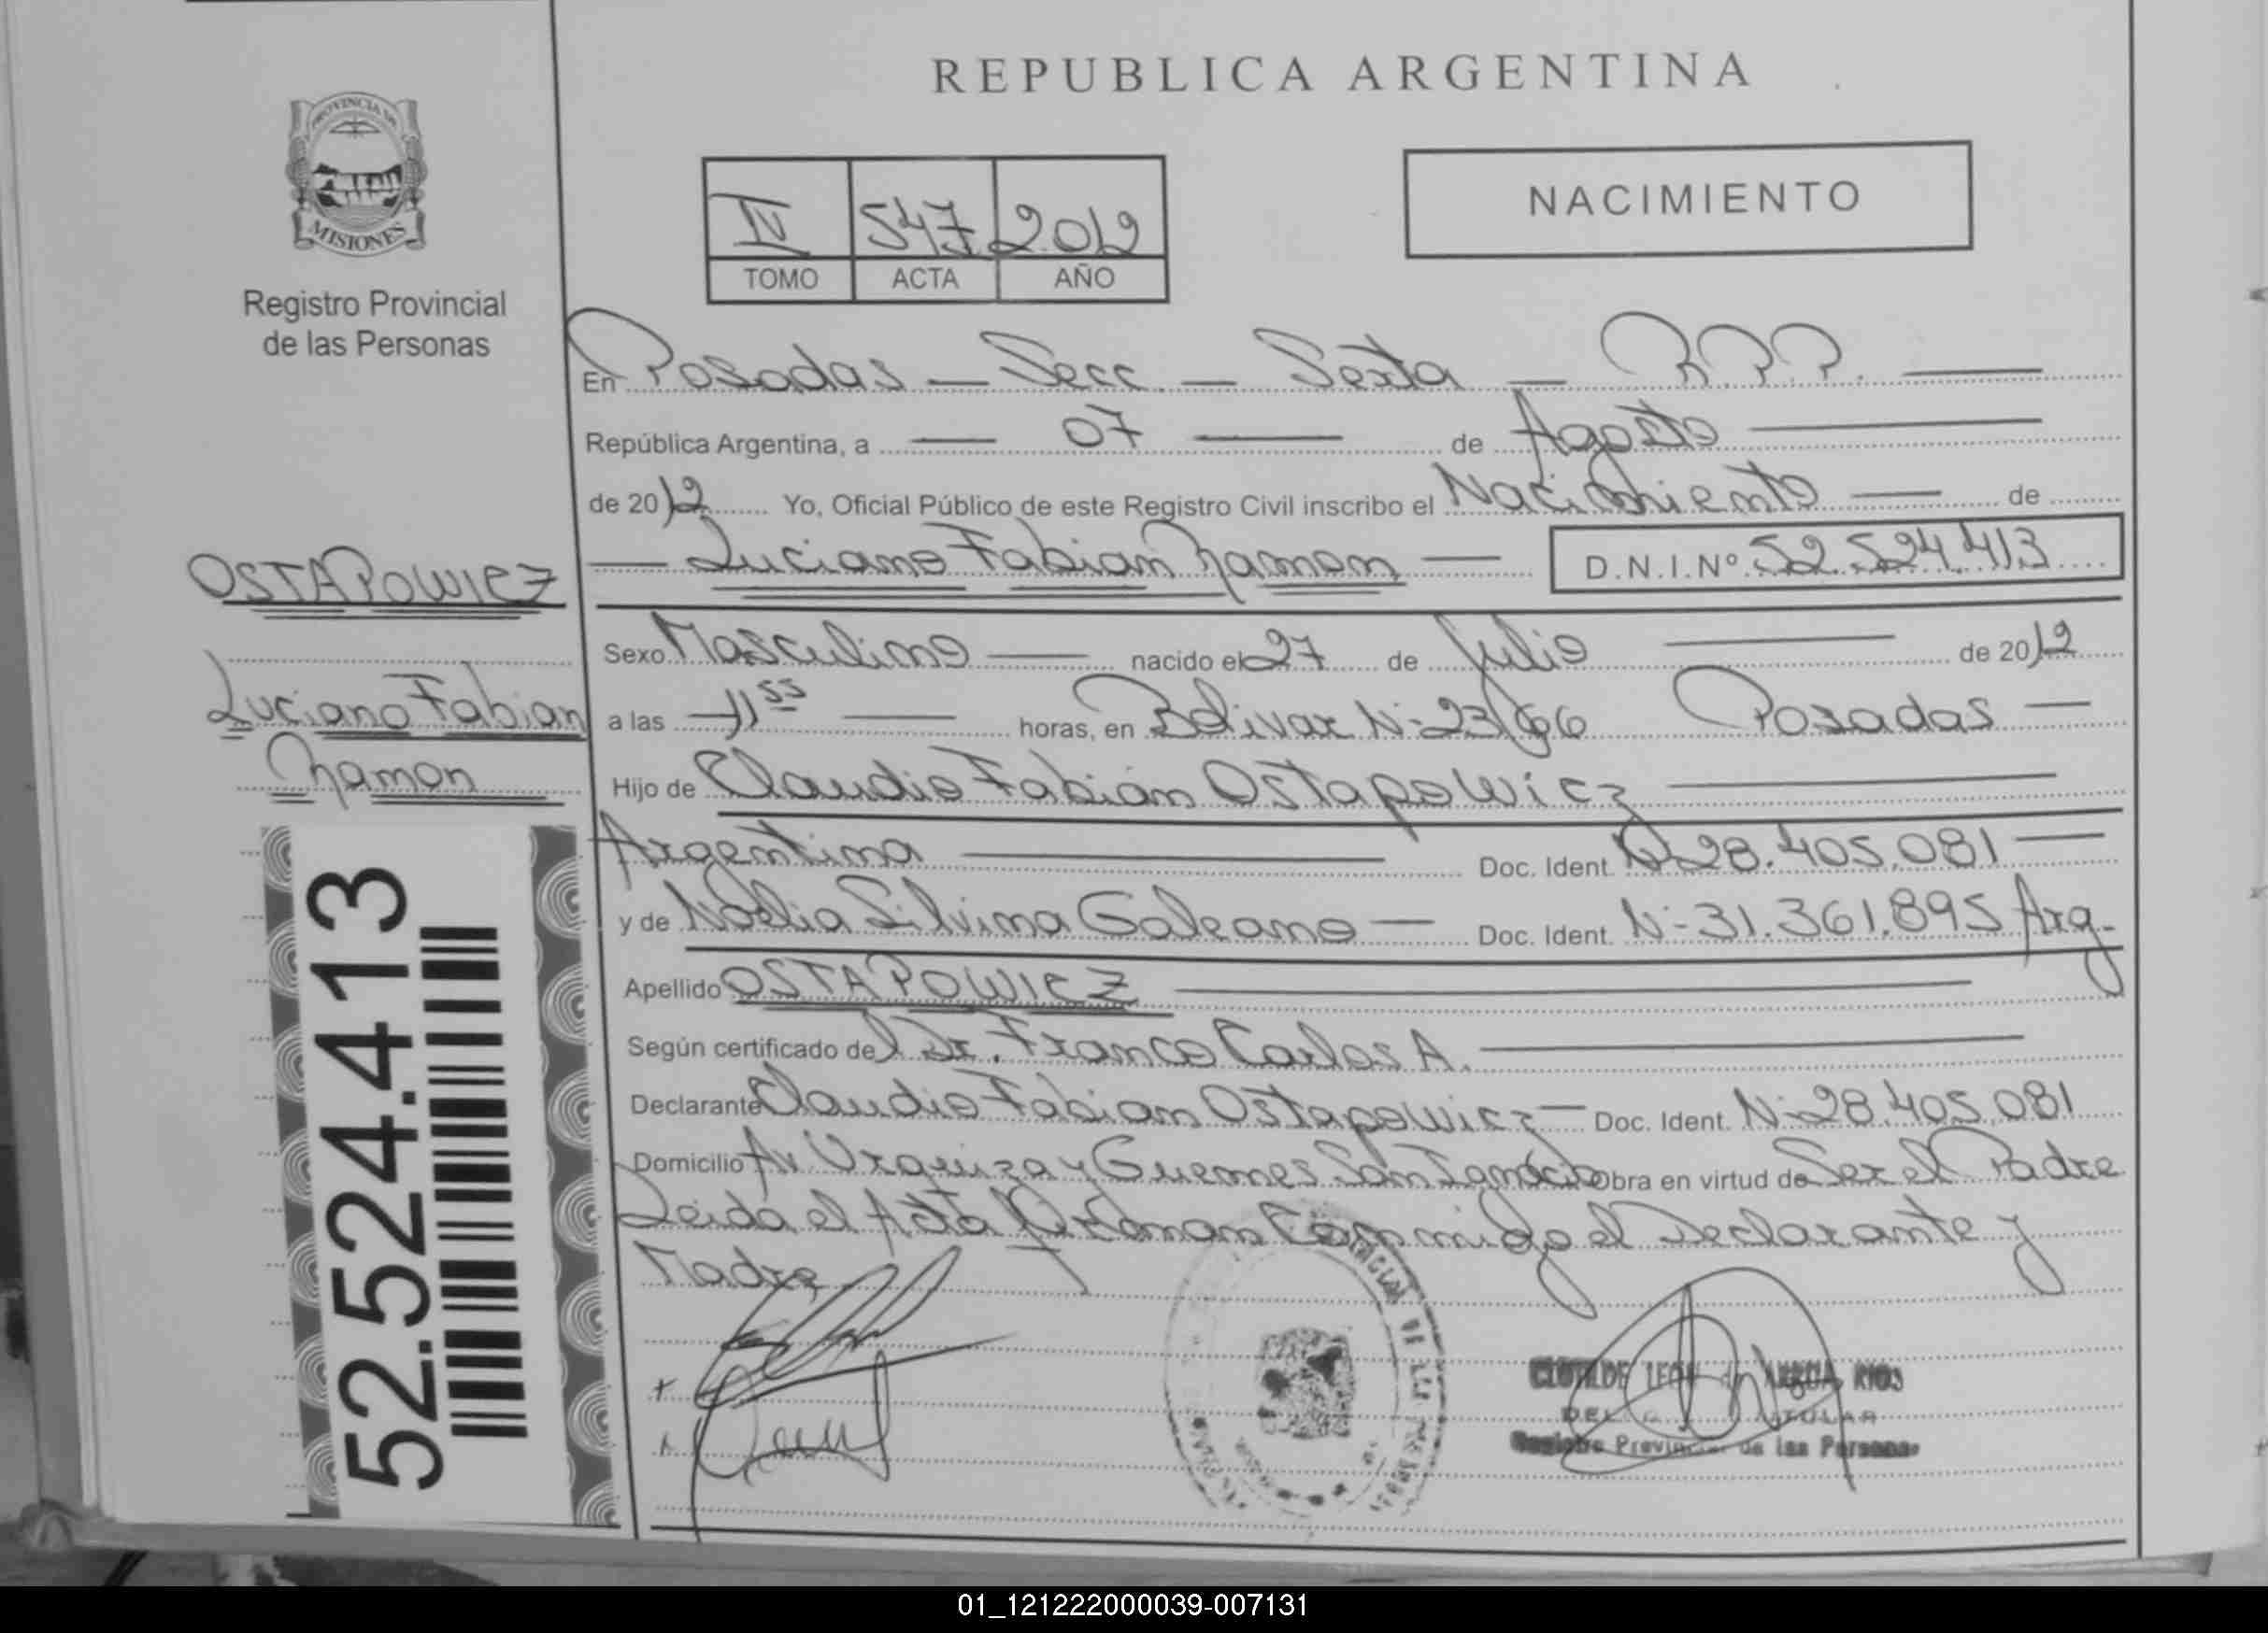 REPUBLICA ARGENTINA
PROVINCIA DE
MISIONES
Registro Provincial
de las Personas
IV 547 2012
TOMO ACTA AÑO
NACIMIENTO
En Posadas — Secc. — Sexta — R.P.P. —
República Argentina, a — 07 — de Agosto —
de 2012 Yo, Oficial Público de este Registro Civil inscribo el Nacimiento — de
— Luciano Fabian Ramon — D.N.I.Nº 52.524.413
OSTAPOWICZ
Luciano Fabian
Ramon
Sexo Masculino — nacido el 27 de Julio — de 2012
a las 11 55 — horas, en Bolivar Nº 23/66 Posadas —
Hijo de Claudio Fabián Ostapowicz —
Argentina — Doc. Ident. Nº 28.405.081 —
y de Noelia Silvina Galeano — Doc. Ident. Nº 31.361.895 Arg.
Apellido OSTAPOWICZ —
Según certificado del Dr. Franco Carlos A. —
Declarante Claudio Fabian Ostapowicz — Doc. Ident. Nº 28.405.081
Domicilio Av Urquiza y Guemes San Ignacio Obra en virtud de Ser el Padre
Leida el Acta Firman Conmigo el Declarante y
Madre
52.524.413
CLOTILDE LEON RIOS
TITULAR
Registro Provincial de las Personas
01_121222000039-007131